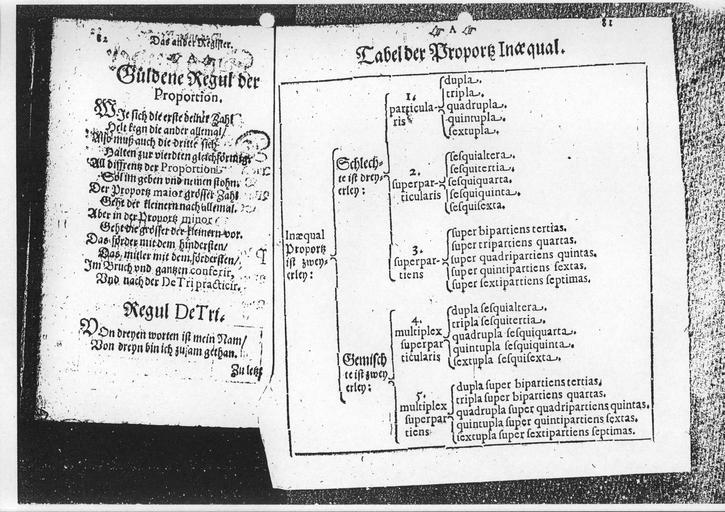 82
Das ander Register.
A
Güldene Regul der
Proportion.
WJe sich die erste
Helt kegn die ander allemal/
Also muß auch die dritte sich
Halten zur vierdten gleichförmig.
All diffrentz der Proportion
Sol im geben und nemen stohn.
Der Proportz maior grösser Zahl
Geht der kleinern nach allemal.
Aber in der Proportz minor
Geht die grösser der kleinern vor.
Das förder mit dem hindersten/
Das mitler mit dem fördersten/
Im Bruch und gantzen conferir,
Und nach der De Tri practicir.
Regul DeTri.
VOn dreyen worten ist mein Nam/
Von dreyn bin ich zusam gethan.
Zu letzt
81
A
Tabel der Proportz Inæqual.
Inæqual
Proportz
ist zwey-
erley:
Schlech-
te ist drey-
erley:
1.
particula-
ris
dupla.
tripla.
quadrupla.
quintupla.
sextupla.
2.
superpar-
ticularis
sesquialtera.
sesquitertia.
sesquiquarta.
sesquiquinta.
sesquisexta.
3.
superpar-
tiens
super bipartiens tertias.
super tripartiens quartas.
super quadripartiens quintas.
super quintipartiens sextas.
super sextipartiens septimas.
Gemisch
te ist zwey
erley:
4.
multiplex
superpar
ticularis
dupla sesquialtera.
tripla sesquitertia.
quadrupla sesquiquarta.
quintupla sesquiquinta.
sextupla sesquisexta.
5.
multiplex
superpar
tiens
dupla super bipartiens tertias.
tripla super bipartiens quartas.
quadrupla super quadripartiens quintas.
quintupla super quintipartiens sextas.
sextupla super sextipartiens septimas.